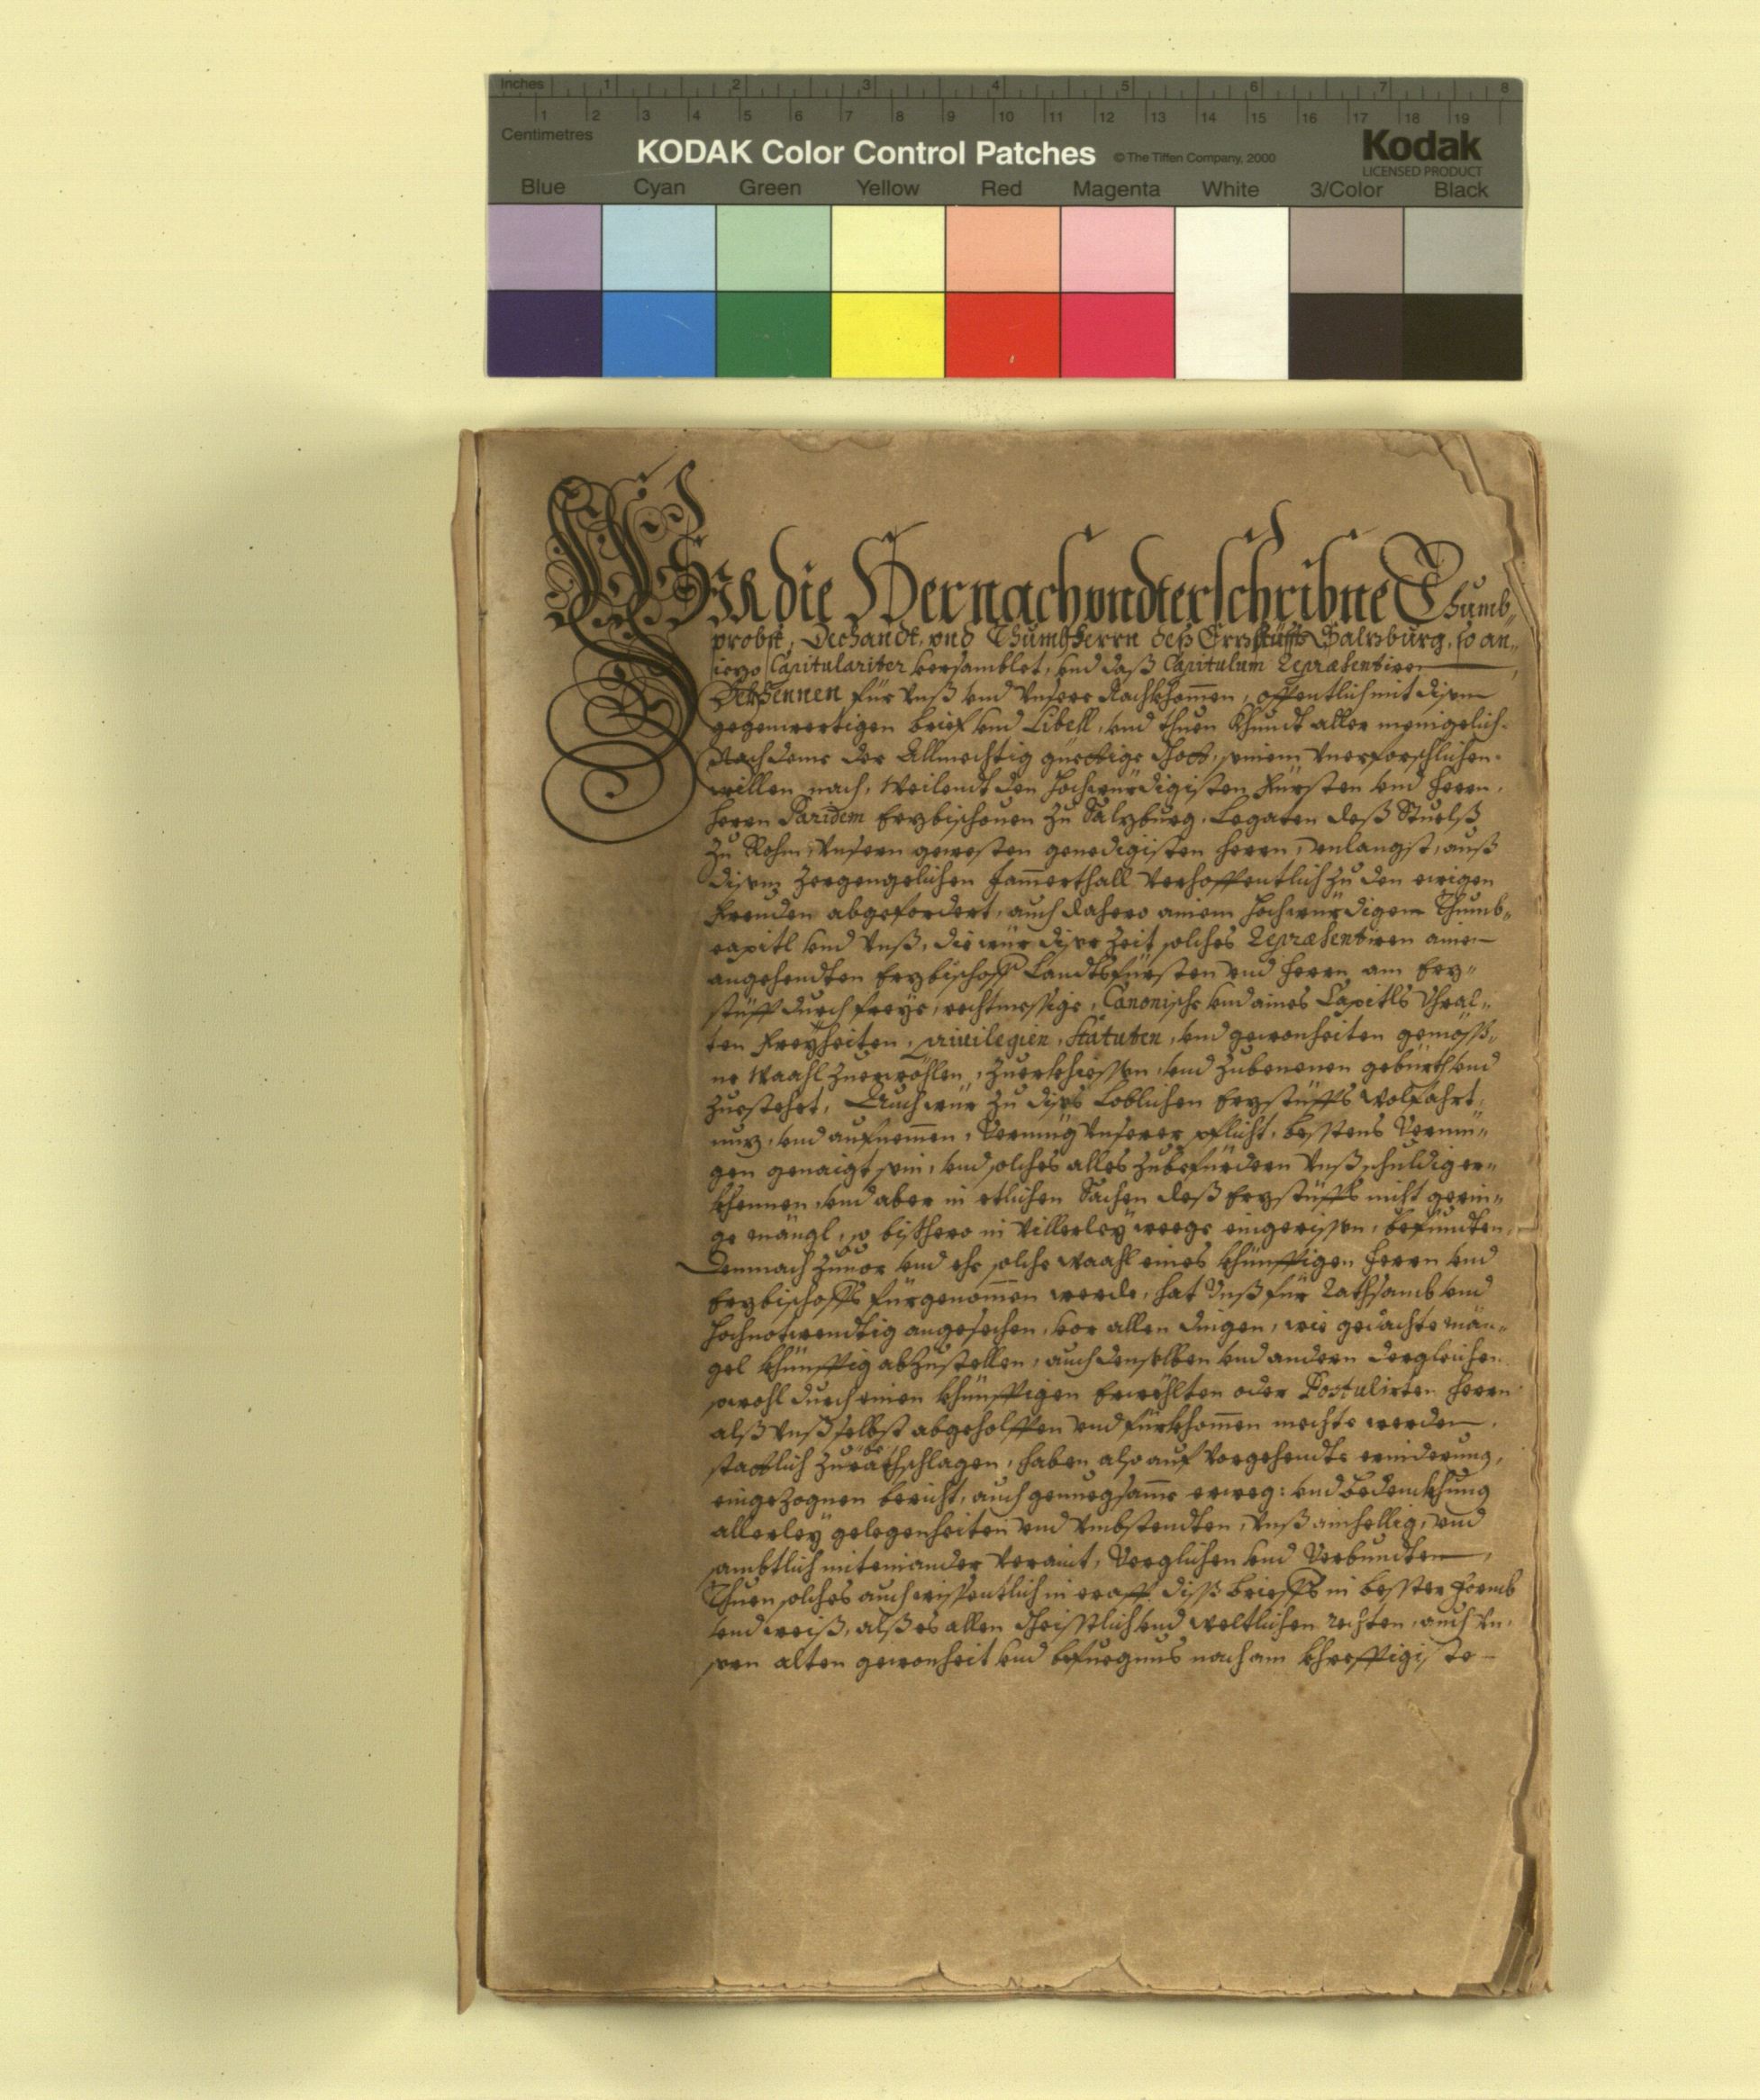 Inches 1 2 3 4 5 6 7 8
1 2 3 4 5 6 7 8 9 10 11 12 13 14 15 16 17 18 19
Centimetres
KODAK Color Control Patches © The Tiffen Company, 2000 Kodak
LICENSED PRODUCT
Blue Cyan Green Yellow Red Magenta White 3/Color Black
WIR die Hernachundterschribne Thumb„
probst, Dechandt, und Thumbherrn deß Erzstüffts Salzburg, so an„
iezo Capitulariter versamblet, und daß Capitulum Repræsentiren
Bekhennen für Unß und Unsere Nachkhom̄en, offentlich mit disem
gegenwertigen brief und Libell, und thuen khundt aller menigelich.
Nachdeme der Allmechtig güettige Gott, seinem Unerforschlichen
willen nach, Weilendt den Hochwürdigisten Fürsten und Herrn,
Herrn Paridem Erzbischouen zu Salzburg, Legaten deß Stuelß
zu Rohm, Unsern gewesten genedigisten Herrn, vnlangst, auß
disem zergengelichen Jam̄erthall verhoffentlich zu den ewigen
Freuden abgefordert, auch dahero ainem Hochwürdigem Thumb„
capitl und Unß, die wür diser Zeit solches Repræsentiren ainen
angehendten Erzbischoff Landtsfürsten und Herrn am Erz„
stüfft durch freye, rechtmessige, Canonische und aines Capitls Uhral„
ten Freyheiten, priuilegien, Statuten, und gewonheiten gemöß„
ne Waahl zuerwöhlen, zuerkhiessen, und zubenenen gebürth und
zuestehet, Auch wür zu dises Loblichen Erzstüffts wolfahrt,
nuz, und aufnem̄en, Vermüg Unserer pflicht, besstens Vermü„
gen genaigt sein, und solches alles zubefürdern Unß schuldig er„
khennen, und aber in etlichen Sachen deß Erzstüffts nicht gerin„
ge mängl, so bißhero in Villerley weege eingerissen, befundten,
Demnach zuuor und ehe solche Waahl eines khünfftigen Herrn und
Erzbischoffs fürgenom̄en werde, hat Unß für Rathsamb und
hochnotwendtig angesechen, vor allen dingen, wie gedachte män„
gel khünfftig abzustellen, auch denselben und andern dergleichen
sowohl durch einen khünfftigen Erwöhlten oder Postulirten Herrn
alß Unß selbst abgeholffen und fürkhom̄en mechte werden,
stattlich zuberathschlagen, haben also auf Vorgehendte erinderung,
eingezognen bericht, auch genuegsam̄e erweg: und bedenckhung
allerley gelegenheiten und Umbstendten, Unß ainhellig, und
sambtlich miteinander Veraint, Verglichen und Verbundten,
Thuen solches auch wissentlich in crafft diß brieffs in bester Formb
und weiß, alß es allen Geistlich und weltlichen rechten, auch Un„
sern alten gewonheit und befuegnus nach am khrefftigiste